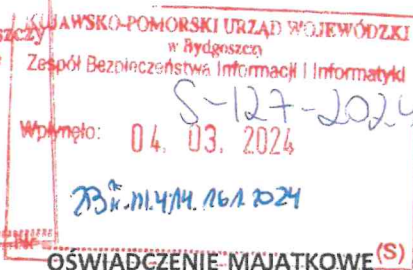 szczy
KUJAWSKO-POMORSKI URZĄD WOJEWÓDZKI
w Bydgoszczy
Zespół Bezpieczeństwa Informacji i Informatyki
S-127-2024
Wpłynęło: 04. 03. 2024
OŚWIADCZENIE MAJĄTKOWE (S)